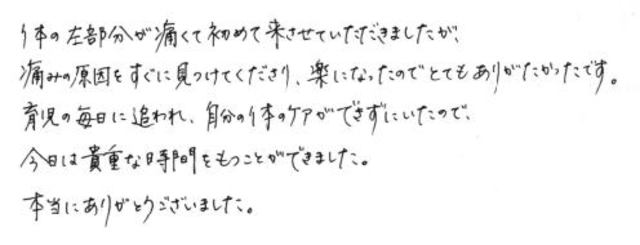 体の左部分が痛くて初めて来させていただきましたが、
痛みの原因をすぐに見つけてくださり、楽になったのでとてもありがたかったです。
育児の毎日に追われ、自分の体のケアができずにいたので、
今日は貴重な時間をもつことができました。
本当にありがとうございました。